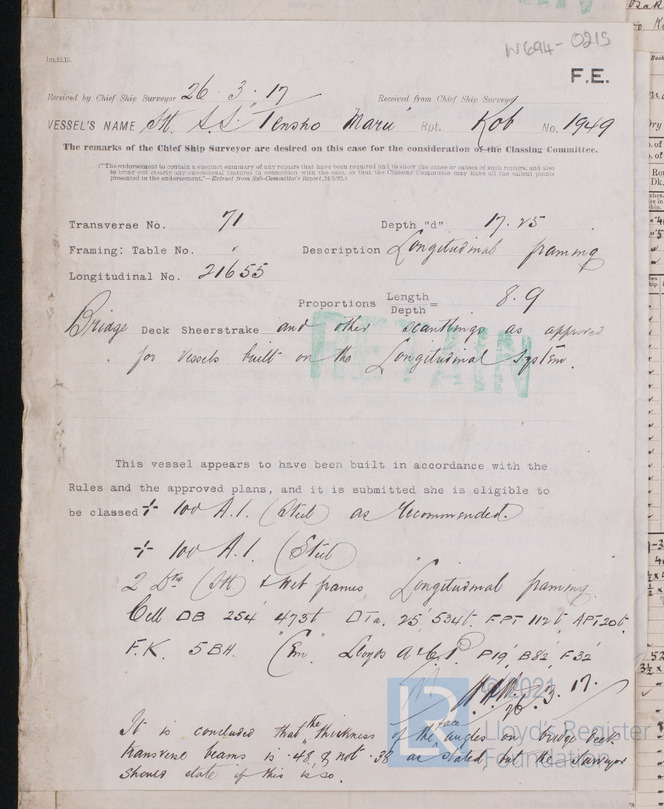 W694-0215
1m.12.15.
F.E.
Received by Chief Ship Surveyor 26.3.17 Received from Chief Ship Surveyor
VESSEL'S NAME St. S.S. "Tensho Maru" Rpt. Kob No. 1949
The remarks of the Chief Ship Surveyor are desired on this case for the consideration of the Classing Committee.
("The endorsement to contain a succinct summary of any repairs that have been required and to show the cause or causes of such repairs, and also
to bring out clearly any exceptional features in connection with the case, so that the Classing Committee may have all the salient points
presented in the endorsement."—Extract from Sub-Committee's Report,
Transverse No. 71 Depth "d" 17.25
Framing: Table No. " Description Longitudinal framing
Longitudinal No. 21655
Proportions Length/Depth = 8.9
Bridge Deck Sheerstrake and other scantlings as approved
for vessels built on the Longitudinal System.
RETAIN
This vessel appears to have been built in accordance with the
Rules and the approved plans, and it is submitted she is eligible to
be classed + 100 A.1. (Steel) as Recommended.
+ 100 A.1 (Steel)
2 Dks (Stl) & Web frames, Longitudinal framing
Cell DB 254' 473t DTa. 25' 534t. FPT 112t APT 20t.
F.K. 5 BH. Lloyds A & C.P. P19', B82', F32'
26.3.17.
© 2021
Lloyd's Register
Foundation
It is concluded that the thickness of the face angles on bridge deck
transverse beams is .48, & not .38 as stated, but the Surveyor
should state if this is so.